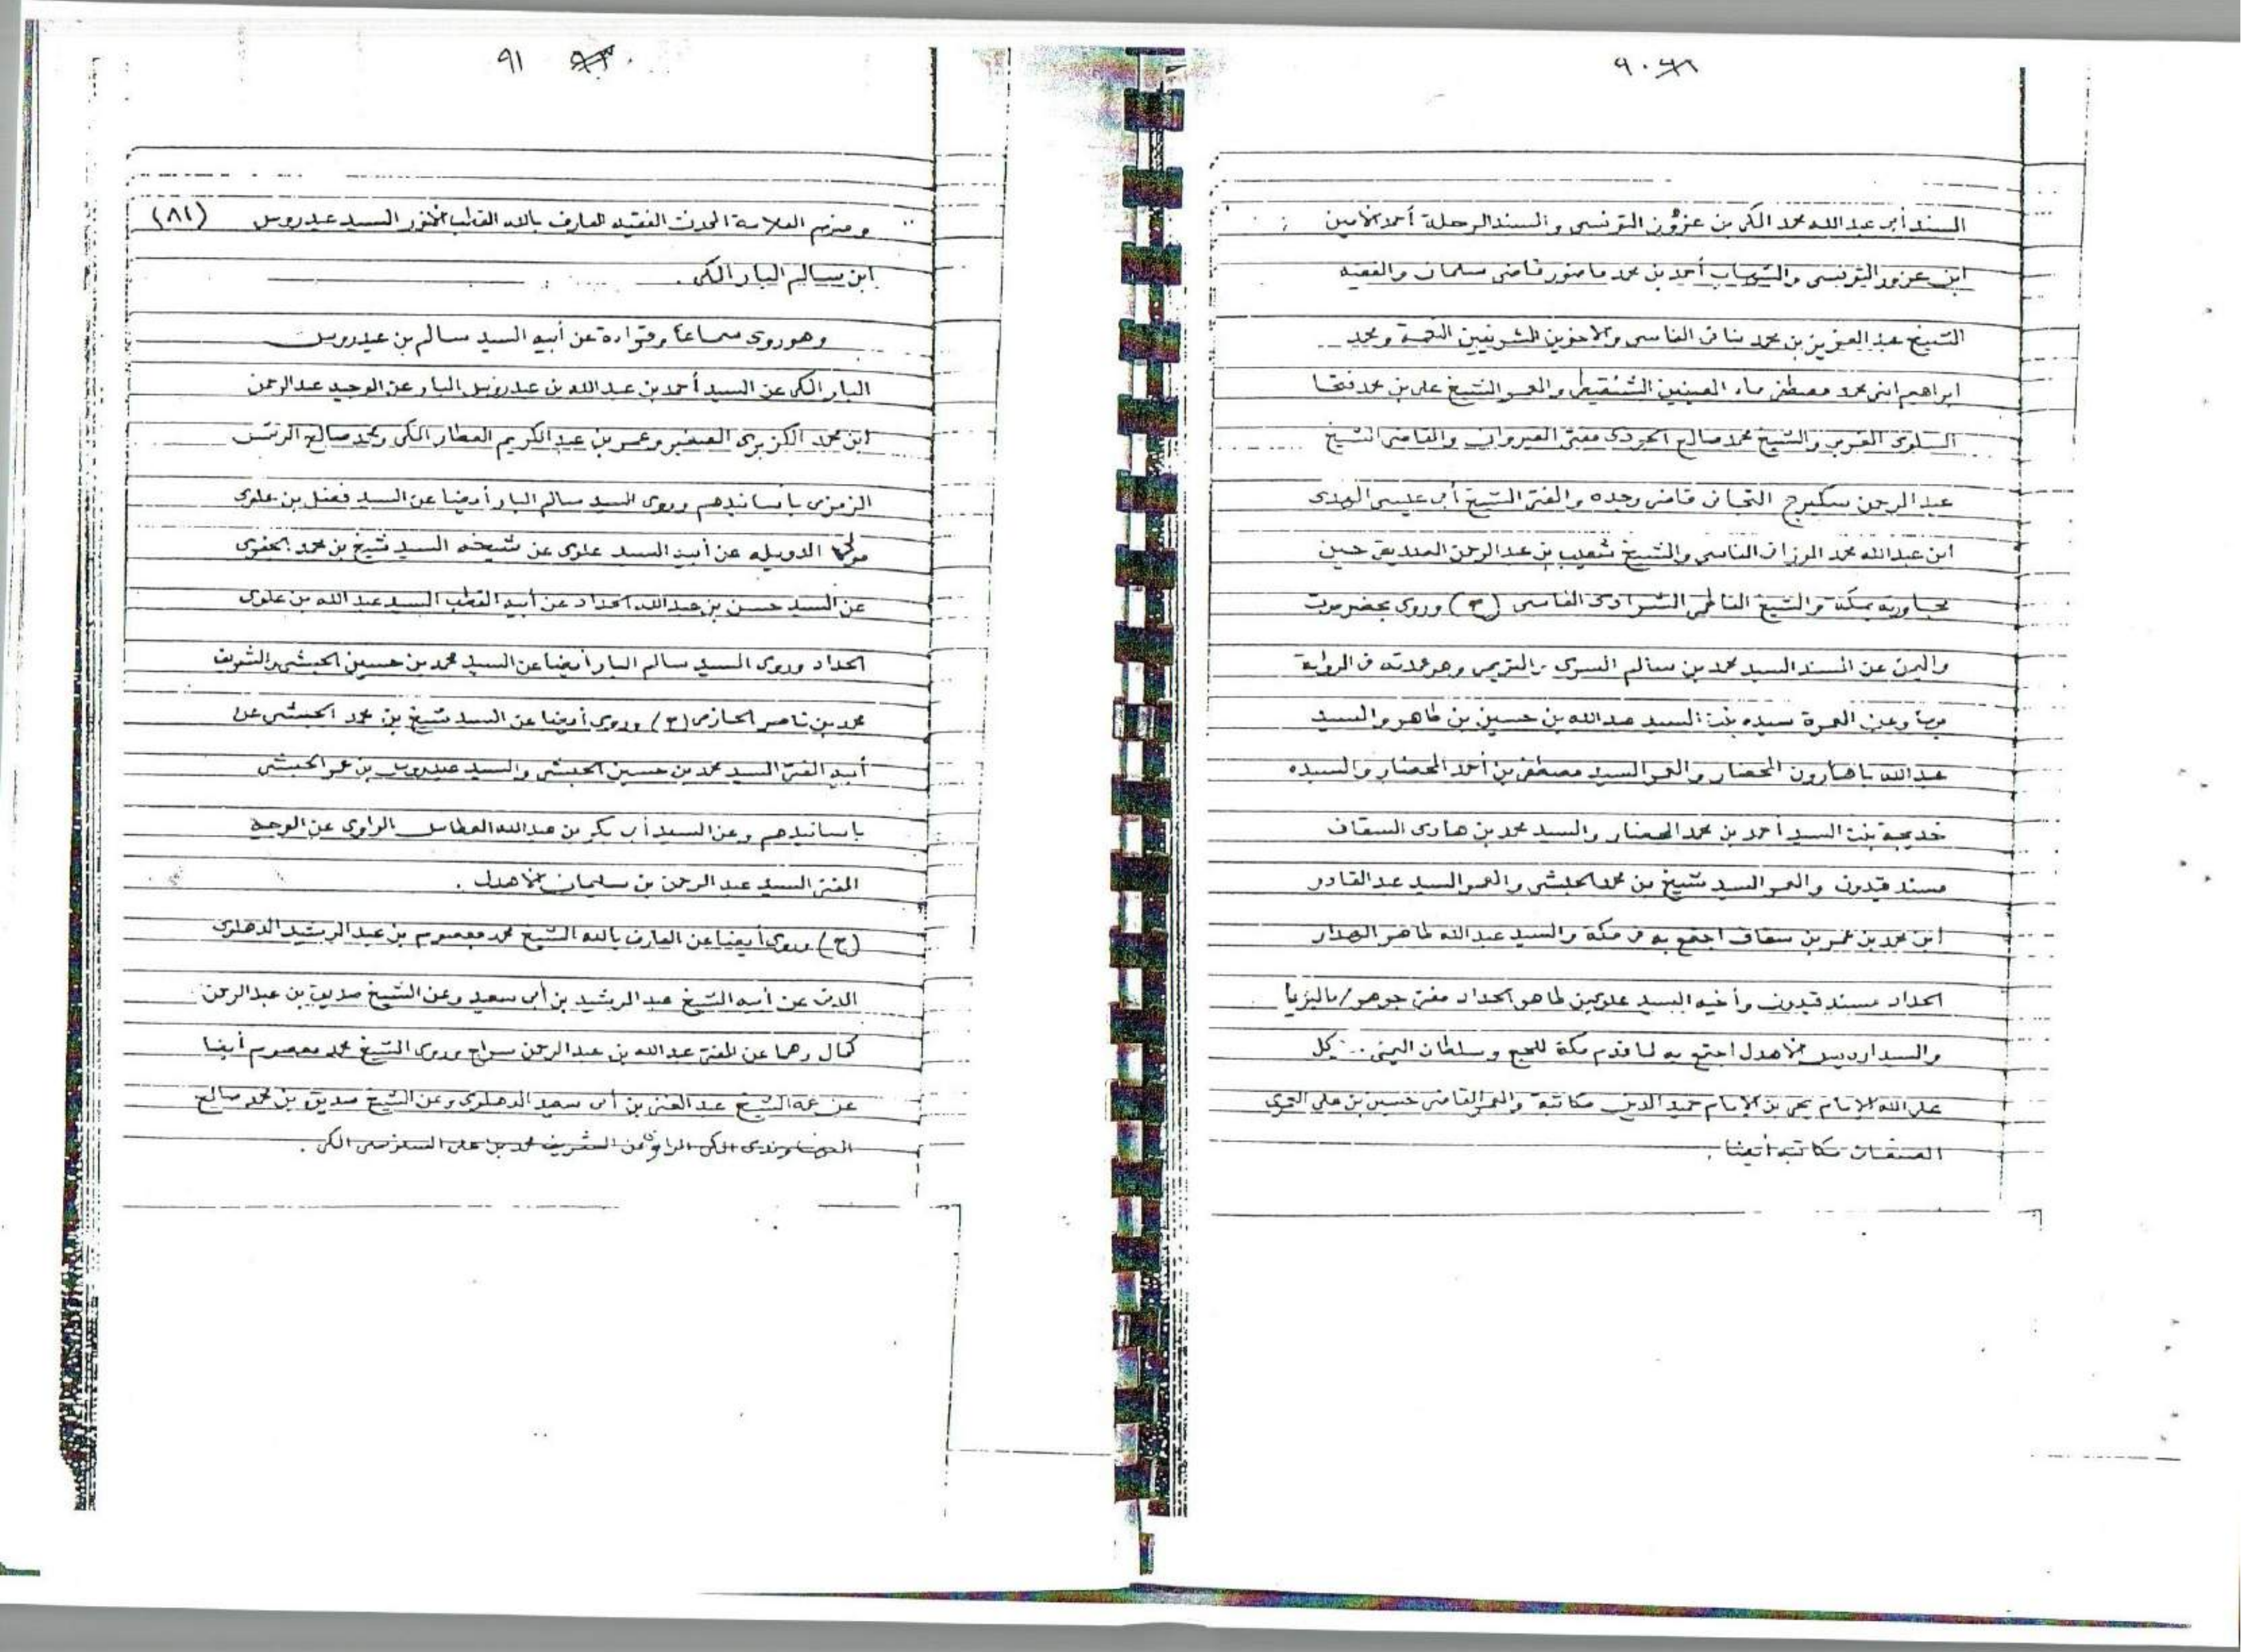 ٩٠
السند أبى عبد الله محمد المكى بن عزوز التونسى والسند الرحلة أحمد الأمين
ابن عزوز التونسى والشهاب أحمد بن محمد قاضى سلمان والفقيه
الشيخ عبد العزيز بن محمد بنانى الفاسى والأخوين الشريفين النعمة ومحمد
ابراهيم ابنى محمد مصطفى ماء العينين الشنقيطى والمعمر الشيخ على بن محمد فتحا
السلوى والشيخ محمد صالح الجودى مفتى القيروان والقاضى الشيخ
عبد الرحمن سكيرج التجانى قاضى وجده والمفتى الشيخ أبى عيسى المهدى
ابن عبد الله محمد الوزانى الفاسى والشيخ شعيب بن عبد الرحمن الصديقى حين
مجاورته بمكة والشيخ الفاطمى الشرادى الفاسى (ح) وروى بحضرموت
واليمن عن المسند السيد محمد بن سالم السرى التريمى وهو عمدته فى الرواية
بها وعن الحرة سيده بنت السيد عبد الله بن حسين بن طاهر والسيد
عبد الله باهارون المحضار والمعمر السيد مصطفى بن أحمد المحضار والسيده
خديجة بنت السيد أحمد بن محمد المحضار والسيد محمد بن هادى السقاف
مسند قيدون والمعمر السيد شيخ بن محمد الحبشى والمعمر السيد عبد القادر
ابن محمد بن عمر بن سقاف اجتمع به فى مكة والسيد عبد الله طاهر الهدار
الحداد مسند قيدون وأخيه السيد علوى بن طاهر الحداد مفتى جوهر/ماليزيا
والسيد ادريس الأهدل اجتمع به لما قدم مكة للحج وسلطان اليمن كل
على الله الإمام يحى بن الإمام حميد الدين مكاتبة والمعمر القاضى حسين بن على العمرى
الصنعانى مكاتبة أيضا .
٩١
ومنهم العلامة المحدث الفقيه العارف بالله القطب السيد عيدروس (٨١)
ابن سالم البار المكى .
وهو روى سماعا وقراءة عن أبيه السيد سالم بن عيدروس
البار المكى عن السيد أحمد بن عبد الله بن عيدروس البار عن الوجيه عبد الرحمن
ابن محمد الكزبرى الصغير وعمر بن عبد الكريم العطار المكى ومحمد صالح الريس
الزمزمى بأسانيدهم وروى السيد سالم البار أيضا عن السيد فضل بن علوى
مولى الدويله عن أبيه السيد علوى عن شيخه السيد شيخ بن محمد الجفرى
عن السيد حسن بن عبد الله الحداد عن أبيه القطب السيد عبد الله بن علوى
الحداد وروى السيد سالم البار أيضا عن السيد محمد بن حسين الحبشى والشريف
محمد بن ناصر الحازمى (ح) وروى أيضا عن السيد شيخ بن محمد الحبشى عن
أبيه المفتى السيد محمد بن حسين الحبشى والسيد عيدروس بن عمر الحبشى
بأسانيدهم وعن السيد أبى بكر بن عبد الله العطاس الراوى عن الوجيه
المفتى السيد عبد الرحمن بن سليمان الأهدل .
(ح) وروى أيضا عن العارف بالله الشيخ محمد معصوم بن عبد الرشيد الدهلوى
المدنى عن أبيه الشيخ عبد الرشيد بن أبى سعيد وعن الشيخ صديق بن عبد الرحمن
كمال وهما عن المفتى عبد الله بن عبد الرحمن سراج وروى الشيخ محمد معصوم أيضا
عن عمه الشيخ عبد الغنى بن أبى سعيد الدهلوى وعن الشيخ صديق بن محمد صالح
المكى الراوى عن الشريف محمد بن على السنوسى المكى .